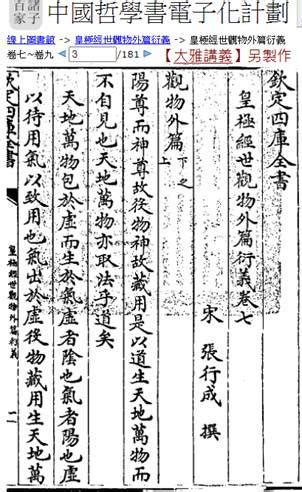 諸子百家
中國哲學書電子化計劃
線上圖書館 -> 皇極經世觀物外篇衍義 -> 皇極經世觀物外篇衍義
卷七~卷九 3 /181 【大雅講義】另製作
欽定四庫全書
皇極經世觀物外篇衍義卷七
宋 張行成 撰
觀物外篇下之上
陽尊而神尊故役物神故藏用是以道生天地萬物而
不自見也天地萬物亦取法乎道矣
天地萬物包於虛而生於氣虛者陰也氣者陽也虛
以待用氣以致用也氣出於虛役物藏用生天地萬
欽定四庫全書
皇極經世觀物外篇衍義
二